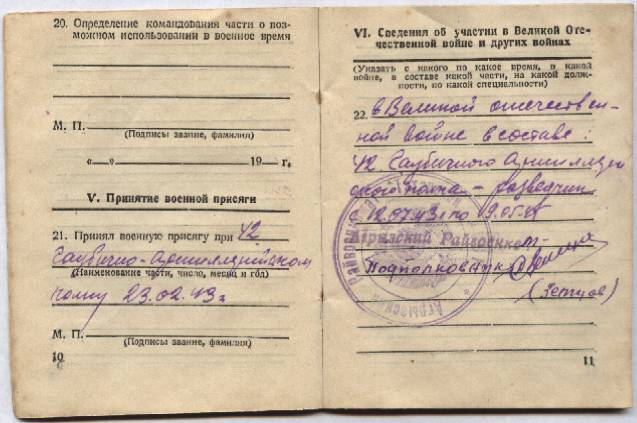 20. Определение командования части о воз-
можном использовании в военное время
М. П.
(Подписы звание, фамилия)
«—»                19 — г.
V. Принятие военной присяги
21. Принял военную присягу при 42
Гаубично-Артиллерийском
(Наименование части, число, месяц и год)
полку 23.02.43 г
М. П.
(Подписы звание, фамилия)
10
VI. Сведения об участии в Великой Оте-
чественной войне и других войнах
(Указать с какого по какое время, в какой
войне, в составе какой части, на какой долж-
ности, по какой специальности)
22. в Великой отечествен-
ной войне в составе:
42 Гаубичного Артиллерий
ского полка – разведчик
с 12.07.43 г по 9.05.45
Агрызский Райвоенком
Подполковник
11